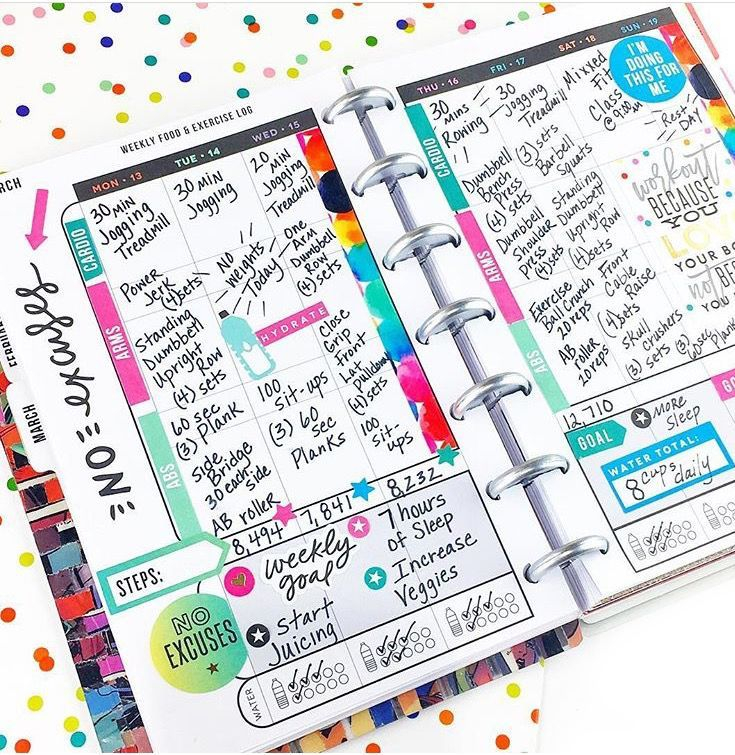 WEEKLY FOOD & EXERCISE LOG
MARCH
FEBRUARY
NO excuses
MON · 13
TUE · 14
WED · 15
CARDIO
30 MIN
Jogging
Treadmill
30 MIN
Jogging
20 MIN
Jogging
Treadmill
ARMS
Power
Jerk
(4) sets
Standing
Dumbbell
Upright
Row
(4) sets
NO
Weights
Today
HYDRATE
One
Arm
Dumbbell
Row
(4) sets
Close
Grip
Front
Lat
Pulldown
(4) sets
ABS
60 sec
(3) Plank
Side
Bridge
30 each
Side
AB roller
100
Sit-ups
(3) 60
Sec
Planks
100
Sit-
ups
STEPS:
8,494
7,841
8,232
NO
EXCUSES
weekly
goal
Start
Juicing
7 hours
of Sleep
Increase
Veggies
WATER
THU · 16
FRI · 17
SAT · 18
SUN · 19
CARDIO
30
mins
Rowing
30
Jogging
Treadmill
Mixxed
Fit
Class
@ 9:30am
I'M
DOING
THIS FOR
ME
Rest
DAY
ARMS
Dumbbell
Bench
Press
(4) sets
Dumbbell
Shoulder
Press
(4) sets
(3) sets
Barbell
Squats
Standing
Dumbbell
Upright
Row
(4) sets
Front
Cable
Raise
(4) sets
Skull
Crushers
(3) sets
workout
BECAUSE
YOU
LOVE
YOUR BO
not BE
YOU
ABS
Exercise
Ball Crunch
20 reps
AB
Roller
20 reps
(3) 60sec
Planks
12,710
GOAL
More
Sleep
WATER TOTAL:
8 cups daily
GO